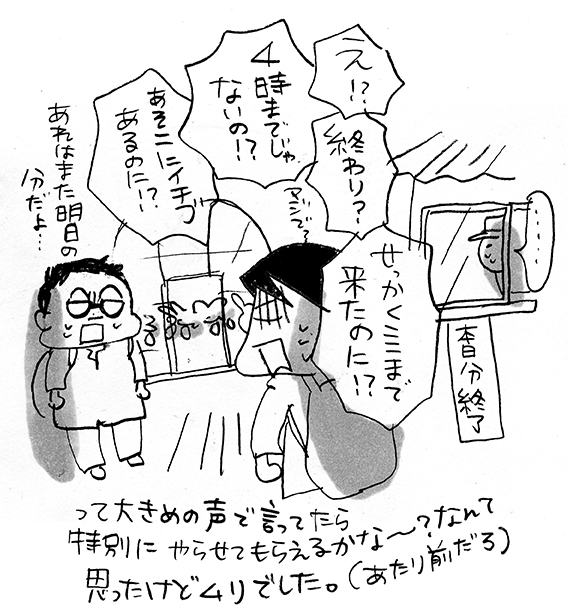 え!?
終わり?
4
時までじゃ
ないの!?
マジで?
あそこにイチゴ
あるのに!?
せっかくここまで
来たのに!?
……
本日分終了
あれはまた明日の
分だよ…
って大きめの声で言ってたら
特別に やらせてもらえるかな〜?なんて
思ったけどムリでした。(あたり前だろ)